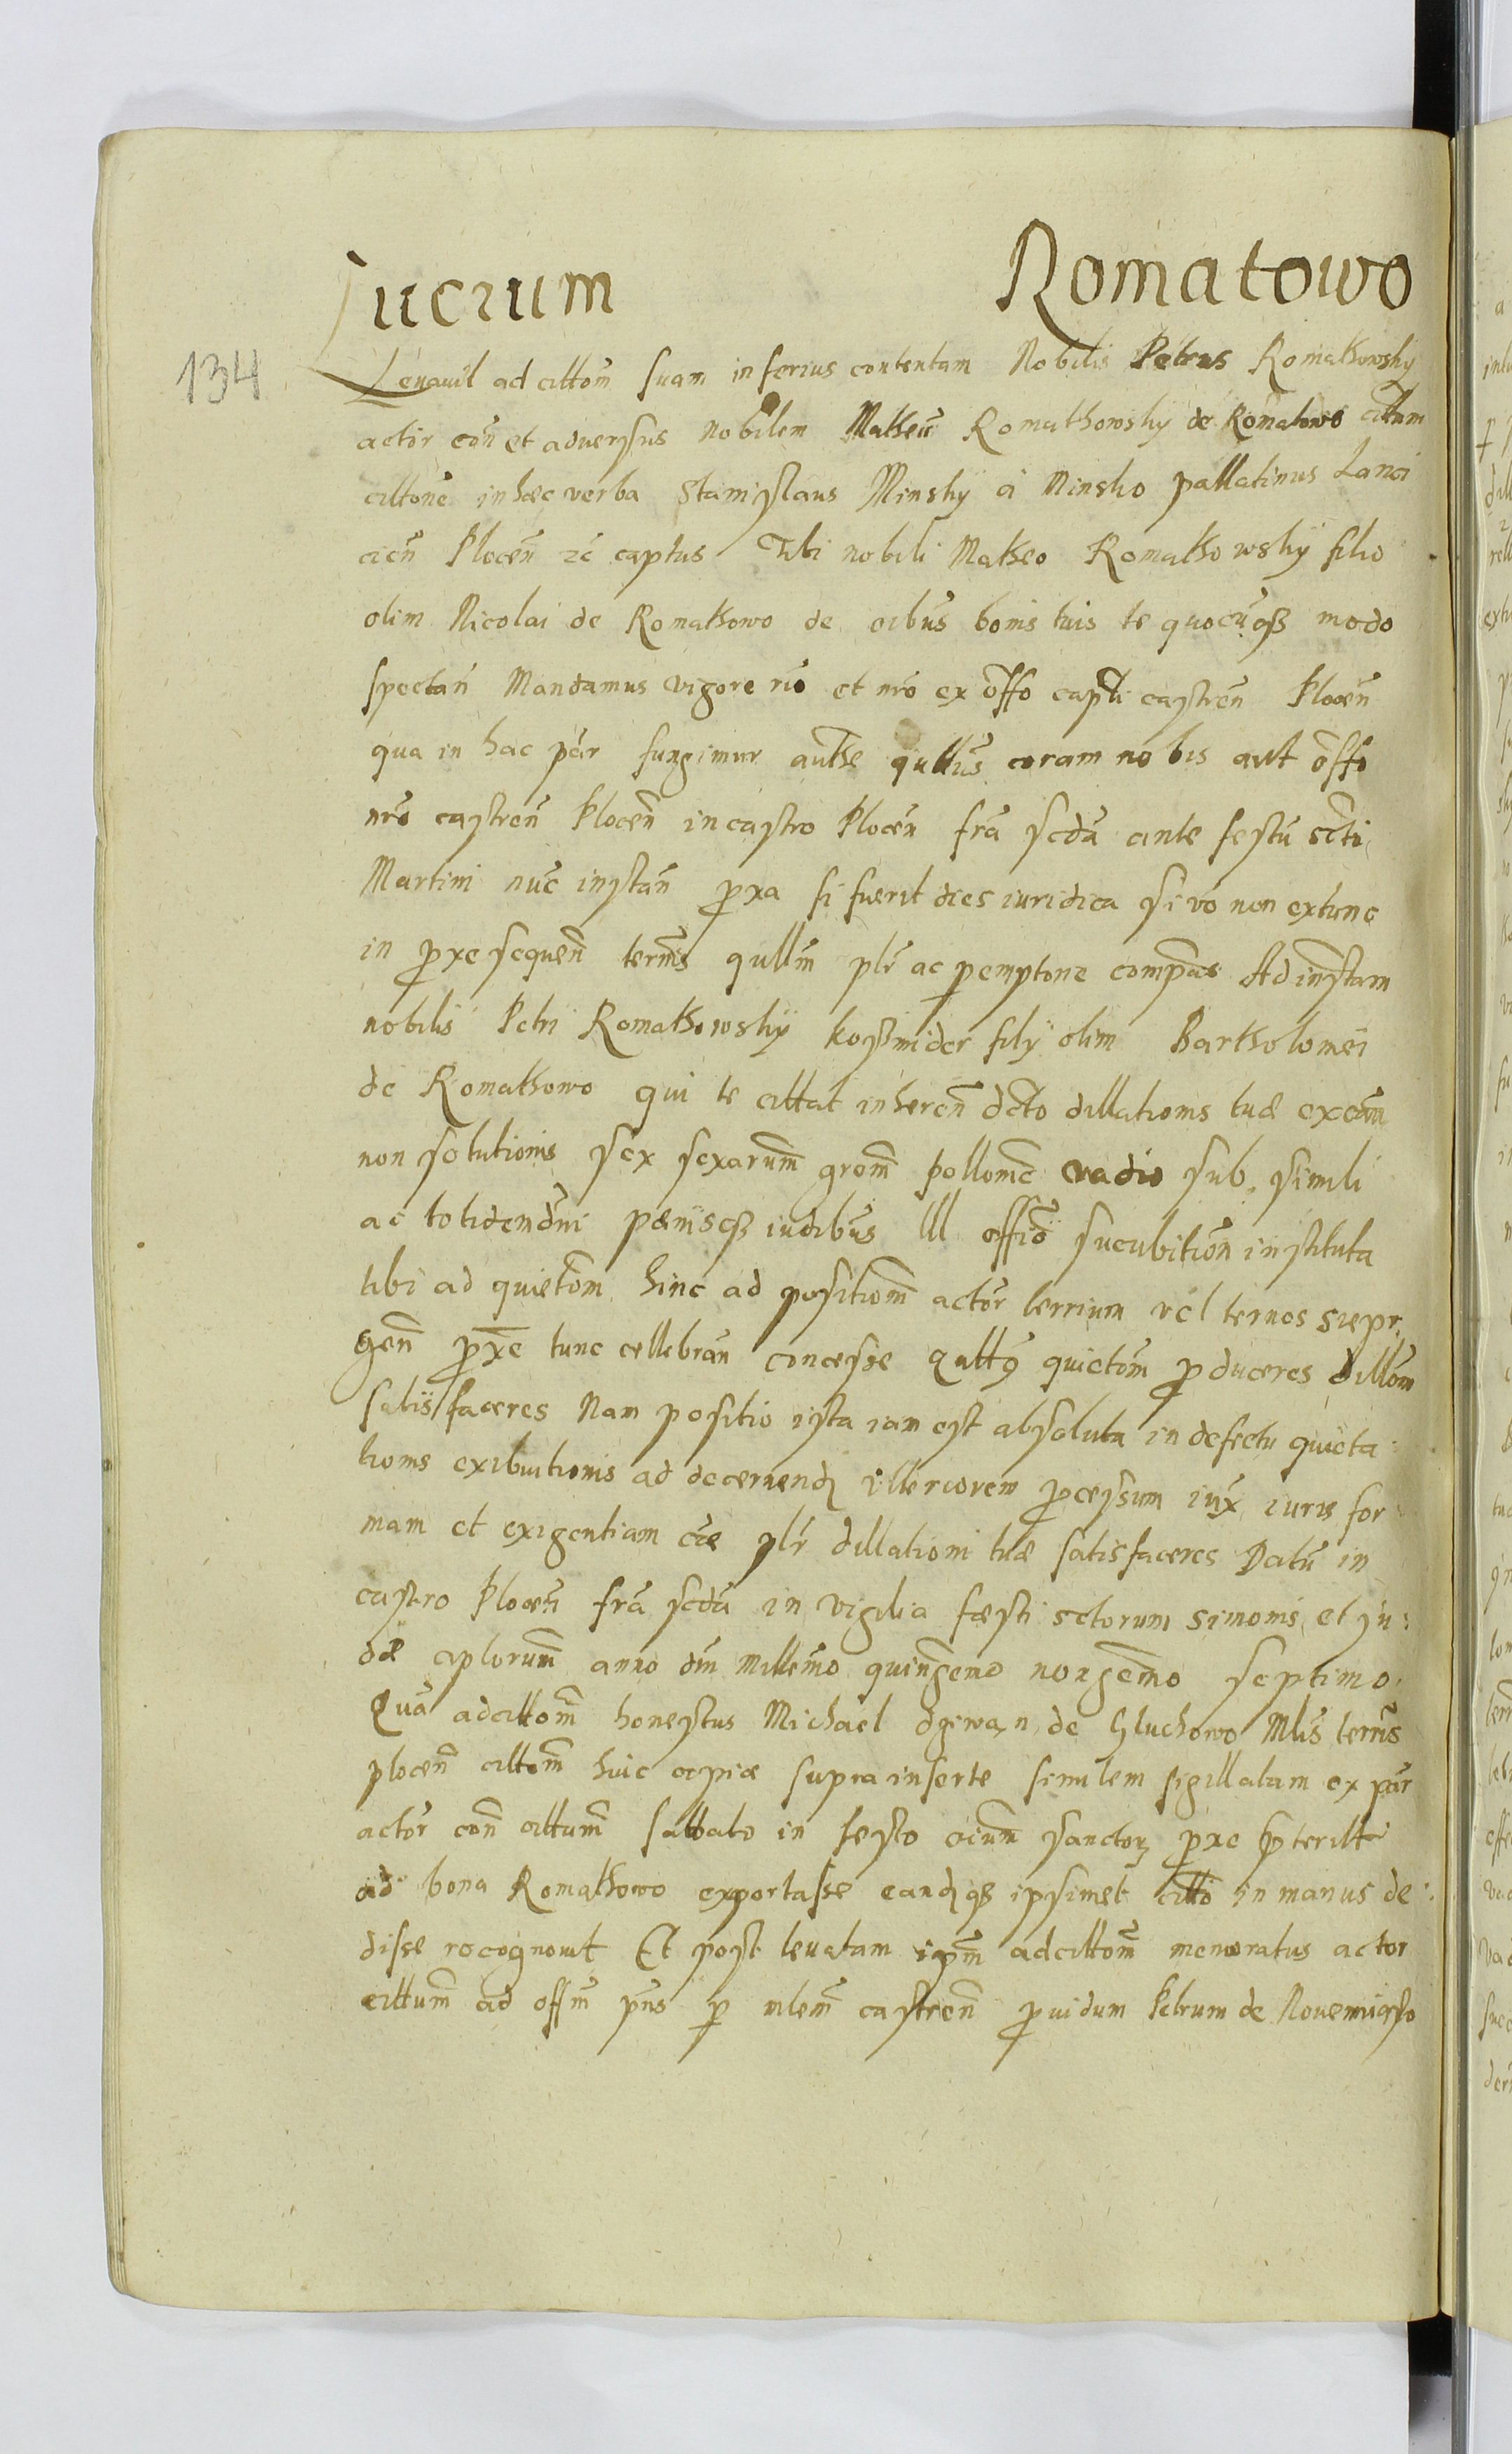 Lucrum Romatowo
134
Levavit ad cittom suam inferius contentam Nobilis Petrus Romathowsky
actor con et adversus Nobilem Matheu Romathowsky de Romatowo cittum
cittone in hæc verba Stanislaus Minsky a Minsko pallatinus Lanci
cien Plocen zc captus Tibi nobili Matheo Romathowsky filio
olim Nicolai de Romathowo de oibus bonis tuis te quocuqß modo
spectan Mandamus vigore rio et nro ex offo capti castren Plocen
qua in hac par fungimur authe qullus coram nobis aut offo
nro castren Plocen in castro Plocen fra scda ante festu scti
Martini nuc instan pxa si fuerit dies iuridica si vo non extunc
in pxe sequen termis qullm plr ac pemptone compas Ad instam
nobilis Petri Romathowsky koßmider filÿ olim Bartholomei
de Romathowo qui te cittat inheren dcto dillationis tuæ
non solutionis sex sexarum grom pollonc vadio sub simili
ac totidemdni pænisqß iudibus lll offio sucubition instituta
tibi ad quietom hinc ad positiom actor terrium vel termos
gen pxe tunc cellebran concesse quietom pduceres dillom
satisfaceres Nam positio ista iam est absoluta in defectu quieta:
tionis exibuitionis ad decernend ulteriorem pcessum iux iuris for
mam et exigentiam cæ plr dillationi tuæ satisfaceres Datu in
castro Plocen fra scda in vigilia fæsti sctorum simonis et yu:
dæ aplorum anno dni millemo quingemo nongemo septimo.
Qua adcittom honestus Michael de Gluchowo Mlis terris
plocen cittom huic copiæ supra inserte similem sigillatam ex par
actor con cittum sabbato in festo oium sanctoꝝ pxe pterilt
ad bona Romathowo exportasse eandqß ipsimet citto in manus de:
disse recognovit Et post levatam ipm adcittom memoratus actor
cittum ad offm pns p mlem castren pvidum Petrum de